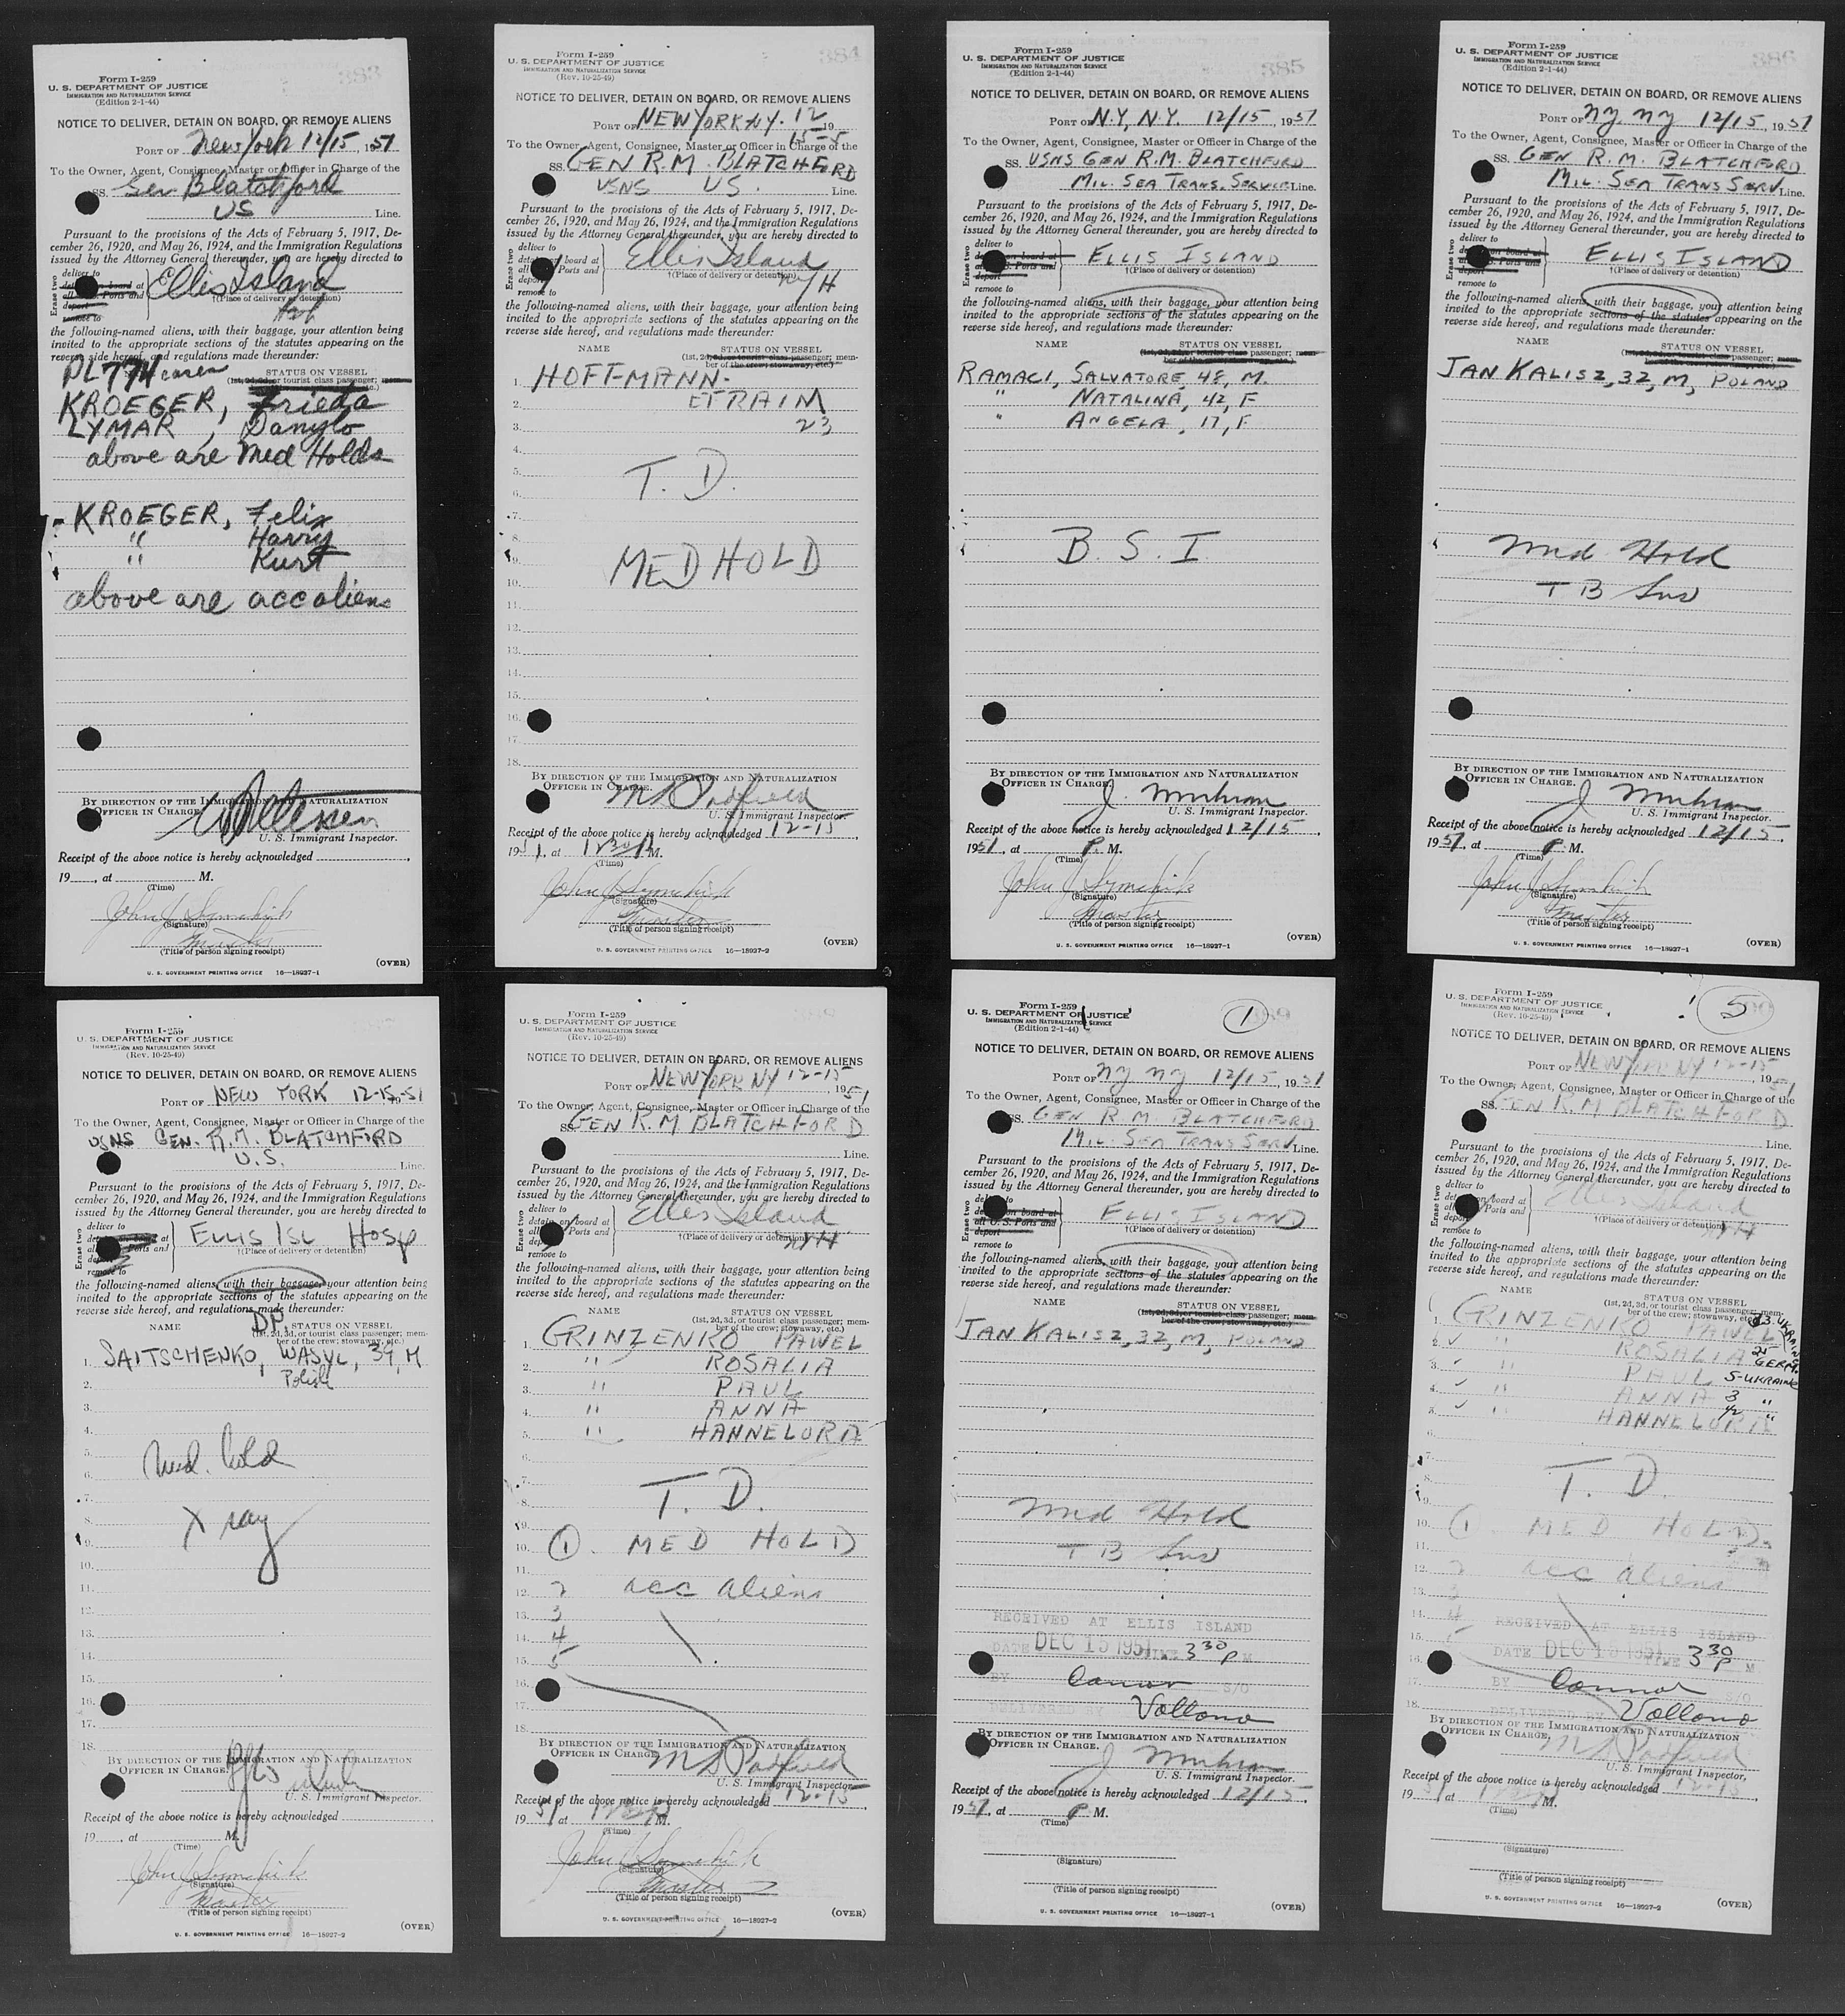 383
Form I-259
U. S. DEPARTMENT OF JUSTICE
IMMIGRATION AND NATURALIZATION SERVICE
(Edition 2-1-44)
NOTICE TO DELIVER, DETAIN ON BOARD, OR REMOVE ALIENS
PORT OF New York 12/15, 1951
To the Owner, Agent, Consignee, Master or Officer in Charge of the
SS. Gen Blatchford
US Line.
Pursuant to the provisions of the Acts of February 5, 1917, De-
cember 26, 1920, and May 26, 1924, and the Immigration Regulations
issued by the Attorney General thereunder, you are hereby directed to
Erase two
deliver to
on board at
all Ports and
deport
remove to
Ellis Island
†(Place of delivery or detention)
the following-named aliens, with their baggage, your attention being
invited to the appropriate sections of the statutes appearing on the
reverse side hereof, and regulations made thereunder:
PL 774 cases
STATUS ON VESSEL
(1st, 2d, 3d, or tourist class passenger; mem-
KROEGER, Frieda
LYMAR, Danylo
above are Med Holds
KROEGER, Felix
" Harry
" Kurt
above are acc aliens
BY DIRECTION OF THE IMMIGRATION AND NATURALIZATION
OFFICER IN CHARGE.
U. S. Immigrant Inspector.
Receipt of the above notice is hereby acknowledged
19 , at M.
(Time)
John J Symchik
(Signature)
Master
(Title of person signing receipt)
(OVER)
U. S. GOVERNMENT PRINTING OFFICE 16—18927-1
384
Form I-259
U. S. DEPARTMENT OF JUSTICE
IMMIGRATION AND NATURALIZATION SERVICE
(Rev. 10-25-49)
NOTICE TO DELIVER, DETAIN ON BOARD, OR REMOVE ALIENS
PORT OF NEW YORK NY. 12
15-5
To the Owner, Agent, Consignee, Master or Officer in Charge of the
SS. GEN R.M. BLATCHFORD
USNS US. Line.
Pursuant to the provisions of the Acts of February 5, 1917, De-
cember 26, 1920, and May 26, 1924, and the Immigration Regulations
issued by the Attorney General thereunder, you are hereby directed to
Erase two
deliver to
detain on board at
all Ports and
deport
remove to
Ellis Island
†(Place of delivery or detention)
NYH
the following-named aliens, with their baggage, your attention being
invited to the appropriate sections of the statutes appearing on the
reverse side hereof, and regulations made thereunder:
NAME STATUS ON VESSEL
(1st, 2d, 3d, or tourist class passenger; mem-
ber of the crew; stowaway, etc.)
1. HOFFMANN-
2. EFRAIM
3. 23
4.
5. T. D.
6.
7.
8.
9. MED HOLD
10.
11.
12.
13.
14.
15.
16.
17.
18.
BY DIRECTION OF THE IMMIGRATION AND NATURALIZATION
OFFICER IN CHARGE.
U. S. Immigrant Inspector
Receipt of the above notice is hereby acknowledged 12-15
1951, at 1230 P M.
(Time)
John J Symchik
(Signature)
Master
(Title of person signing receipt)
(OVER)
U. S. GOVERNMENT PRINTING OFFICE 16—18927-2
385
Form I-259
U. S. DEPARTMENT OF JUSTICE
IMMIGRATION AND NATURALIZATION SERVICE
(Edition 2-1-44)
NOTICE TO DELIVER, DETAIN ON BOARD, OR REMOVE ALIENS
PORT OF N.Y, N.Y. 12/15, 1951
To the Owner, Agent, Consignee, Master or Officer in Charge of the
SS. USNS GEN R.M. BLATCHFORD
MIL. SEA TRANS. SERVICE Line.
Pursuant to the provisions of the Acts of February 5, 1917, De-
cember 26, 1920, and May 26, 1924, and the Immigration Regulations
issued by the Attorney General thereunder, you are hereby directed to
Erase two
deliver to
on board at
U. S. Ports and
deport
remove to
ELLIS ISLAND
†(Place of delivery or detention)
the following-named aliens, with their baggage, your attention being
invited to the appropriate sections of the statutes appearing on the
reverse side hereof, and regulations made thereunder:
NAME STATUS ON VESSEL
(1st, 2d, 3d, or tourist class passenger; mem-
ber of the crew; stowaway, etc.)
RAMACI, SALVATORE, 48, M.
" NATALINA, 42, F
" ANGELA, 17, F
B. S. I
BY DIRECTION OF THE IMMIGRATION AND NATURALIZATION
OFFICER IN CHARGE.
U. S. Immigrant Inspector.
Receipt of the above notice is hereby acknowledged 12/15,
1951, at P. M.
(Time)
John J Symchik
(Signature)
Master
(Title of person signing receipt)
(OVER)
U. S. GOVERNMENT PRINTING OFFICE 16—18927-1
386
Form I-259
U. S. DEPARTMENT OF JUSTICE
IMMIGRATION AND NATURALIZATION SERVICE
(Edition 2-1-44)
NOTICE TO DELIVER, DETAIN ON BOARD, OR REMOVE ALIENS
PORT OF NY, NY 12/15, 1951
To the Owner, Agent, Consignee, Master or Officer in Charge of the
SS. GEN R. M. BLATCHFORD
MIL. SEA TRANS SERV. Line.
Pursuant to the provisions of the Acts of February 5, 1917, De-
cember 26, 1920, and May 26, 1924, and the Immigration Regulations
issued by the Attorney General thereunder, you are hereby directed to
Erase two
deliver to
on board at
U. S. Ports and
deport
remove to
ELLIS ISLAND
†(Place of delivery or detention)
the following-named aliens, with their baggage, your attention being
invited to the appropriate sections of the statutes appearing on the
reverse side hereof, and regulations made thereunder:
NAME STATUS ON VESSEL
(1st, 2d, 3d, or tourist class passenger; mem-
ber of the crew; stowaway, etc.)
JAN KALISZ, 32, M, POLAND
Med Hold
TB
BY DIRECTION OF THE IMMIGRATION AND NATURALIZATION
OFFICER IN CHARGE.
U. S. Immigrant Inspector.
Receipt of the above notice is hereby acknowledged 12/15,
1951, at P. M.
(Time)
John J Symchik
(Signature)
Master
(Title of person signing receipt)
(OVER)
U. S. GOVERNMENT PRINTING OFFICE 16—18927-1
Form I-259
U. S. DEPARTMENT OF JUSTICE
IMMIGRATION AND NATURALIZATION SERVICE
(Rev. 10-25-49)
NOTICE TO DELIVER, DETAIN ON BOARD, OR REMOVE ALIENS
PORT OF NEW YORK 12-15-51
To the Owner, Agent, Consignee, Master or Officer in Charge of the
USNS GEN. R.M. BLATCHFORD
U.S. Line.
Pursuant to the provisions of the Acts of February 5, 1917, De-
cember 26, 1920, and May 26, 1924, and the Immigration Regulations
issued by the Attorney General thereunder, you are hereby directed to
Erase two
deliver to
at
Ports and
remove to
ELLIS ISL HOSP
†(Place of delivery or detention)
the following-named aliens, with their baggage, your attention being
invited to the appropriate sections of the statutes appearing on the
reverse side hereof, and regulations made thereunder:
DP.
NAME STATUS ON VESSEL
(1st, 2d, 3d, or tourist class passenger; mem-
ber of the crew; stowaway, etc.)
1. SAITSCHENKO, WASYL, 39, M
2. Polish
3.
4.
5. Med. hold
6.
7.
8. X ray
9.
10.
11.
12.
13.
14.
15.
16.
17.
18.
BY DIRECTION OF THE IMMIGRATION AND NATURALIZATION
OFFICER IN CHARGE.
U. S. Immigrant Inspector.
Receipt of the above notice is hereby acknowledged
19 , at M.
(Time)
John J Symchik
(Signature)
Master
(Title of person signing receipt)
(OVER)
U. S. GOVERNMENT PRINTING OFFICE 16—18927-2
Form I-259
U. S. DEPARTMENT OF JUSTICE
IMMIGRATION AND NATURALIZATION SERVICE
(Rev. 10-25-49)
NOTICE TO DELIVER, DETAIN ON BOARD, OR REMOVE ALIENS
PORT OF NEW YORK NY 12-15, 1951
To the Owner, Agent, Consignee, Master or Officer in Charge of the
SS. GEN R.M BLATCHFORD
Line.
Pursuant to the provisions of the Acts of February 5, 1917, De-
cember 26, 1920, and May 26, 1924, and the Immigration Regulations
issued by the Attorney General thereunder, you are hereby directed to
Erase two
deliver to
detain on board at
Ports and
deport
remove to
Ellis Island
†(Place of delivery or detention)
NYH
the following-named aliens, with their baggage, your attention being
invited to the appropriate sections of the statutes appearing on the
reverse side hereof, and regulations made thereunder:
NAME STATUS ON VESSEL
(1st, 2d, 3d, or tourist class passenger; mem-
ber of the crew; stowaway, etc.)
1. GRINZENKO PAWEL
2. " ROSALIA
3. " PAUL
4. " ANNA
5. " HANNELORE
6.
7.
8. T. D.
9.
10. 1. MED HOLD
11.
12. 2 acc aliens
13. 3
14. 4
15. 5
16.
17.
18.
BY DIRECTION OF THE IMMIGRATION AND NATURALIZATION
OFFICER IN CHARGE.
U. S. Immigrant Inspector
Receipt of the above notice is hereby acknowledged 12-15
1951 at 1230 P M.
(Time)
John J Symchik
(Signature)
Master
(Title of person signing receipt)
(OVER)
U. S. GOVERNMENT PRINTING OFFICE 16—18927-2
1
Form I-259
U. S. DEPARTMENT OF JUSTICE
IMMIGRATION AND NATURALIZATION SERVICE
(Edition 2-1-44)
NOTICE TO DELIVER, DETAIN ON BOARD, OR REMOVE ALIENS
PORT OF NY NY 12/15, 1951
To the Owner, Agent, Consignee, Master or Officer in Charge of the
SS. GEN R. M. BLATCHFORD
MIL. SEA TRANS SERV. Line.
Pursuant to the provisions of the Acts of February 5, 1917, De-
cember 26, 1920, and May 26, 1924, and the Immigration Regulations
issued by the Attorney General thereunder, you are hereby directed to
Erase two
deliver to
on board at
all U. S. Ports and
deport
remove to
ELLIS ISLAND
†(Place of delivery or detention)
the following-named aliens, with their baggage, your attention being
invited to the appropriate sections of the statutes appearing on the
reverse side hereof, and regulations made thereunder:
NAME STATUS ON VESSEL
(1st, 2d, 3d, or tourist class passenger; mem-
ber of the crew; stowaway, etc.)
JAN KALISZ, 32, M, POLAND
Med Hold
TB
RECEIVED AT ELLIS ISLAND
DATE DEC 15 1951 TIME 3 30 P M
BY Connor S/O
DELIVERED BY Vollono
BY DIRECTION OF THE IMMIGRATION AND NATURALIZATION
OFFICER IN CHARGE.
U. S. Immigrant Inspector.
Receipt of the above notice is hereby acknowledged 12/15,
1951, at P. M.
(Time)
(Signature)
(Title of person signing receipt)
(OVER)
U. S. GOVERNMENT PRINTING OFFICE 16—18927-1
5
Form I-259
U. S. DEPARTMENT OF JUSTICE
IMMIGRATION AND NATURALIZATION SERVICE
(Rev. 10-25-49)
NOTICE TO DELIVER, DETAIN ON BOARD, OR REMOVE ALIENS
PORT OF NEW YORK NY 12-15, 1951
To the Owner, Agent, Consignee, Master or Officer in Charge of the
SS. GEN R.M BLATCHFORD
Line.
Pursuant to the provisions of the Acts of February 5, 1917, De-
cember 26, 1920, and May 26, 1924, and the Immigration Regulations
issued by the Attorney General thereunder, you are hereby directed to
Erase two
deliver to
on board at
Ports and
deport
remove to
Ellis Island
†(Place of delivery or detention)
NYH
the following-named aliens, with their baggage, your attention being
invited to the appropriate sections of the statutes appearing on the
reverse side hereof, and regulations made thereunder:
NAME STATUS ON VESSEL
(1st, 2d, 3d, or tourist class passenger; mem-
ber of the crew; stowaway, etc.)
1. GRINZENKO PAWEL UKRAINE
2. " ROSALIA GERM.
3. " PAUL 5-UKRAINE
4. " ANNA 3 "
5. " HANNELORE "
6.
7.
8. T. D.
9.
10. 1 MED HOLD
11.
12. 2 acc aliens
13. 3
14. 4
15. 5
RECEIVED AT ELLIS ISLAND
DATE DEC 15 1951 TIME 3 30 P M
16.
17. BY Connor S/O
18. DELIVERED BY Vollono
BY DIRECTION OF THE IMMIGRATION AND NATURALIZATION
OFFICER IN CHARGE.
U. S. Immigrant Inspector.
Receipt of the above notice is hereby acknowledged 12-15
1951 at 1230 P M.
(Time)
(Signature)
(Title of person signing receipt)
(OVER)
U. S. GOVERNMENT PRINTING OFFICE 16—18927-2